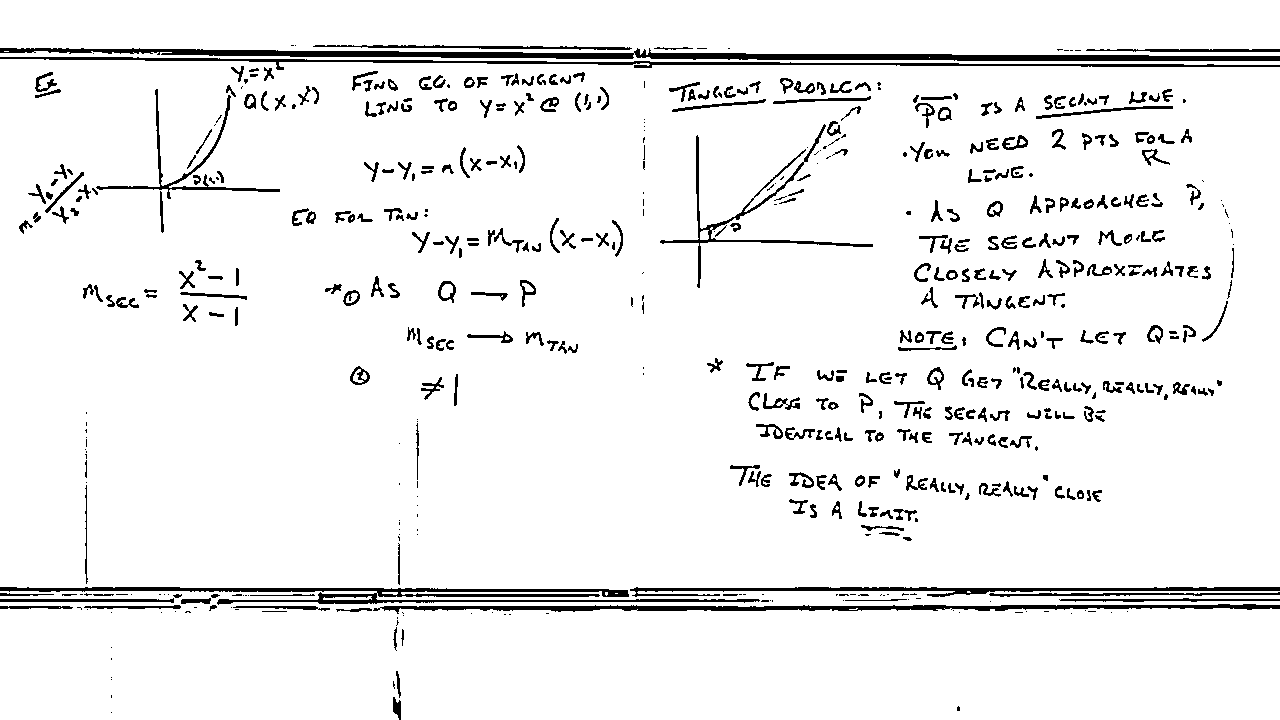 Ex
y=x²
Q(x,x²)
P(1,1)
1
m = y₂-y₁ / x₂-x₁
m_SEC = x²-1 / x-1
FIND EQ. OF TANGENT
LINE TO y=x² @ (1,1)
y-y₁=m(x-x₁)
EQ FOR TAN:
y-y₁=m_TAN(x-x₁)
* ① AS Q → P
m_SEC → m_TAN
② ≠1
TANGENT PROBLEM:
Q
P
"PQ" IS A SECANT LINE.
· YOU NEED 2 PTS FOR A
LINE.
· AS Q APPROACHES P,
THE SECANT MORE
CLOSELY APPROXIMATES
A TANGENT.
NOTE: CAN'T LET Q=P
* IF WE LET Q GET "REALLY, REALLY, REALLY"
CLOSE TO P, THE SECANT WILL BE
IDENTICAL TO THE TANGENT.
THE IDEA OF "REALLY, REALLY" CLOSE
IS A LIMIT.